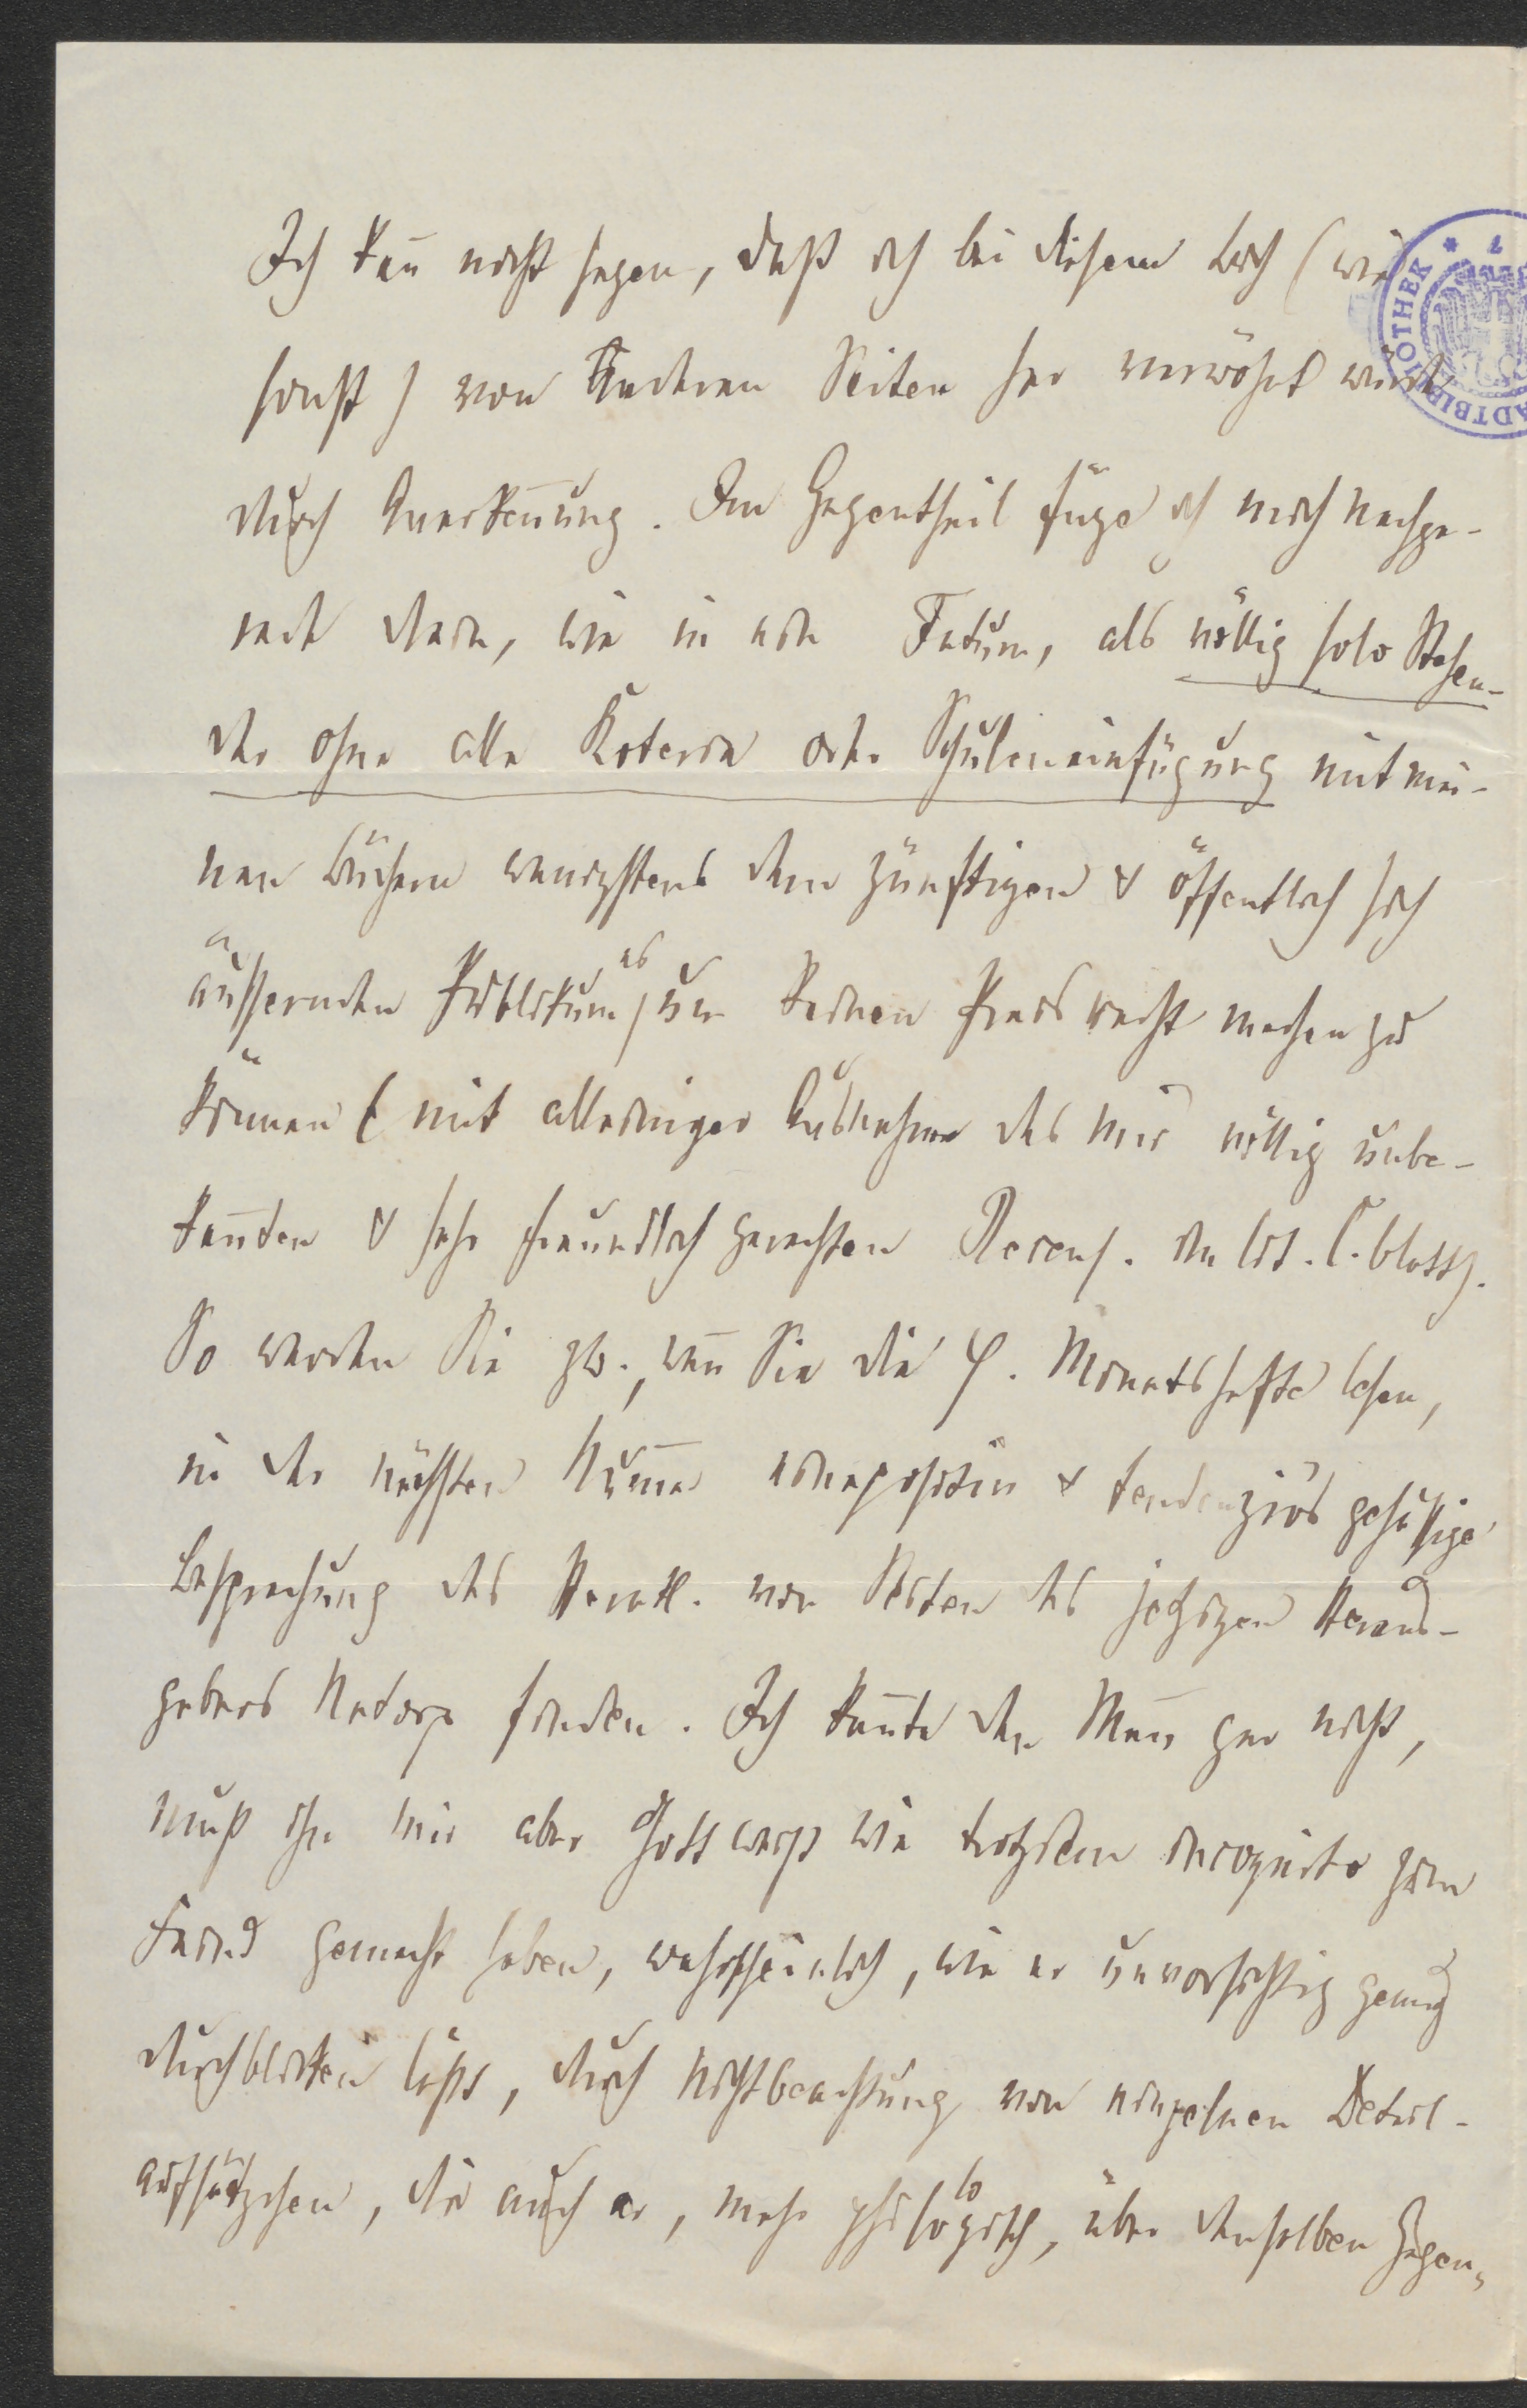 Ich kan̄ nicht sagen, daß ich bei diesem Buch (wie
sonst) von Anderen Seiten her verwöhnt würde
durch Anerken̄ung. Im Gegentheil füge ich mich nachge-
rade darein, wie in ein Fatum, als völlig solo Stehen-
der ohne alle Koterie oder Schuleneinfügung mit mei-
nen Büchern wenigstens dem zünftigen & öffentlich sich
äussernden Publikum es nie keinen Preis recht machen zu
können (mit alleiniger Ausnahme des mir völlig unbe-
kan̄ten & sehr freundlich gerechten Recens. im lit. C.blatt).
So werden Sie zb., wen̄ Sie die φ. Monatshefte lesen,
in der nächsten Num̄er eine positiv & tendenziös gehässige
Besprechung des Heraklit. von Seiten des jetzigen Heraus-
gebers Natorp finden. Ich kan̄te den Man̄ gar nicht,
muß ihn mir aber Gott weiß wie trotzdem incognito zum
Feind gemacht haben, wahrscheinlich, wie er unvorsichtig genug
durchblicken läßt, durch Nichtbeachtung von einzelnen Detail-
aufsätzchen, die auch er, mehr philologisch, über denselben Gegen-
STADTBIBLIOTHEK